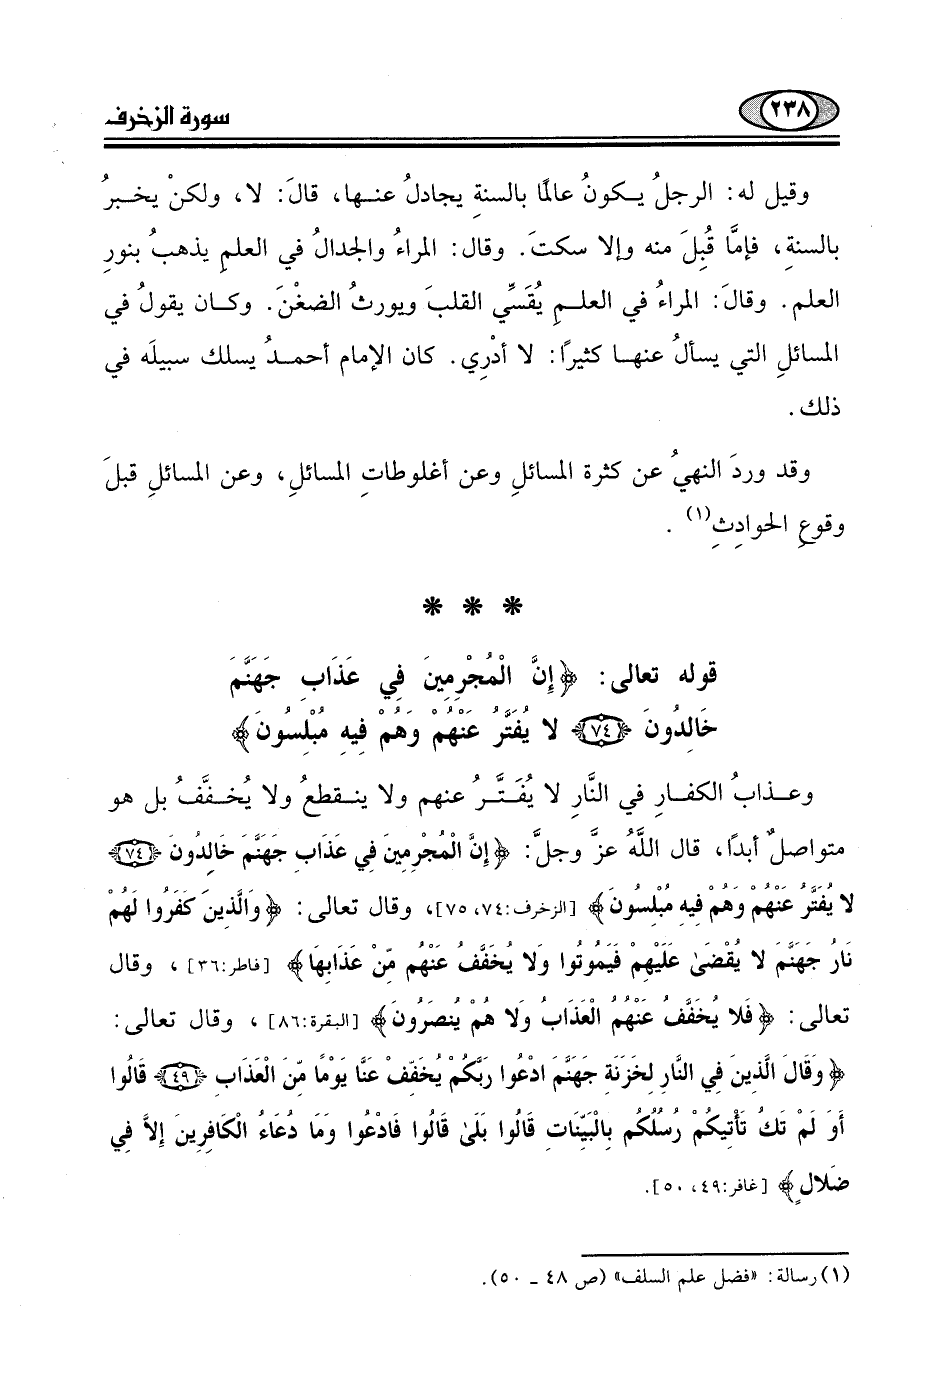 ٢٣٨
سورة الزخرف
وقيل له: الرجلُ يكونُ عالمًا بالسنةِ يجادلُ عنها، قالَ: لا، ولكنْ يخبرُ
بالسنةِ، فإمَّا قُبِلَ منه وإلا سكتَ. وقال: المراءُ والجدالُ في العلمِ يذهبُ بنورِ
العلم. وقالَ: المراءُ في العلمِ يُقَسِّي القلبَ ويورثُ الضغْنَ. وكان يقولُ في
المسائلِ التي يسألُ عنها كثيرًا: لا أدْرِي. كان الإمام أحمدُ يسلك سبيلَه في
ذلك.
وقد وردَ النهيُ عن كثرة المسائلِ وعن أغلوطاتِ المسائلِ، وعن المسائلِ قبلَ
وقوعِ الحوادِثِ(١) .
* * *
قوله تعالى: ﴿إِنَّ الْمُجْرِمِينَ فِي عَذَابِ جَهَنَّمَ
خَالِدُونَ ﴿٧٤﴾ لا يُفَتَّرُ عَنْهُمْ وَهُمْ فِيهِ مُبْلِسُونَ﴾
وعذابُ الكفارِ في النَّارِ لا يُفَتَّرُ عنهم ولا ينقطعُ ولا يُخفَّفُ بل هو
متواصلٌ أبدًا، قال اللَّهُ عزَّ وجلَّ: ﴿إِنَّ الْمُجْرِمِينَ فِي عَذَابِ جَهَنَّمَ خَالِدُونَ ﴿٧٤﴾
لا يُفَتَّرُ عَنْهُمْ وَهُمْ فِيهِ مُبْلِسُونَ﴾ [الزخرف:٧٤، ٧٥]، وقال تعالى: ﴿وَالَّذِينَ كَفَرُوا لَهُمْ
نَارُ جَهَنَّمَ لا يُقْضَىٰ عَلَيْهِمْ فَيَمُوتُوا وَلا يُخَفَّفُ عَنْهُم مِّنْ عَذَابِهَا﴾ [فاطر:٣٦]، وقال
تعالى: ﴿فَلا يُخَفَّفُ عَنْهُمُ الْعَذَابُ وَلا هُمْ يُنصَرُونَ﴾ [البقرة:٨٦]، وقال تعالى:
﴿وَقَالَ الَّذِينَ فِي النَّارِ لِخَزَنَةِ جَهَنَّمَ ادْعُوا رَبَّكُمْ يُخَفِّفْ عَنَّا يَوْمًا مِّنَ الْعَذَابِ ﴿٤٩﴾ قَالُوا
أَوَ لَمْ تَكُ تَأْتِيكُمْ رُسُلُكُم بِالْبَيِّنَاتِ قَالُوا بَلَىٰ قَالُوا فَادْعُوا وَمَا دُعَاءُ الْكَافِرِينَ إِلاَّ فِي
ضَلالٍ﴾ [غافر:٤٩، ٥٠].
(١) رسالة: «فضل علم السلف» (ص ٤٨ - ٥٠).